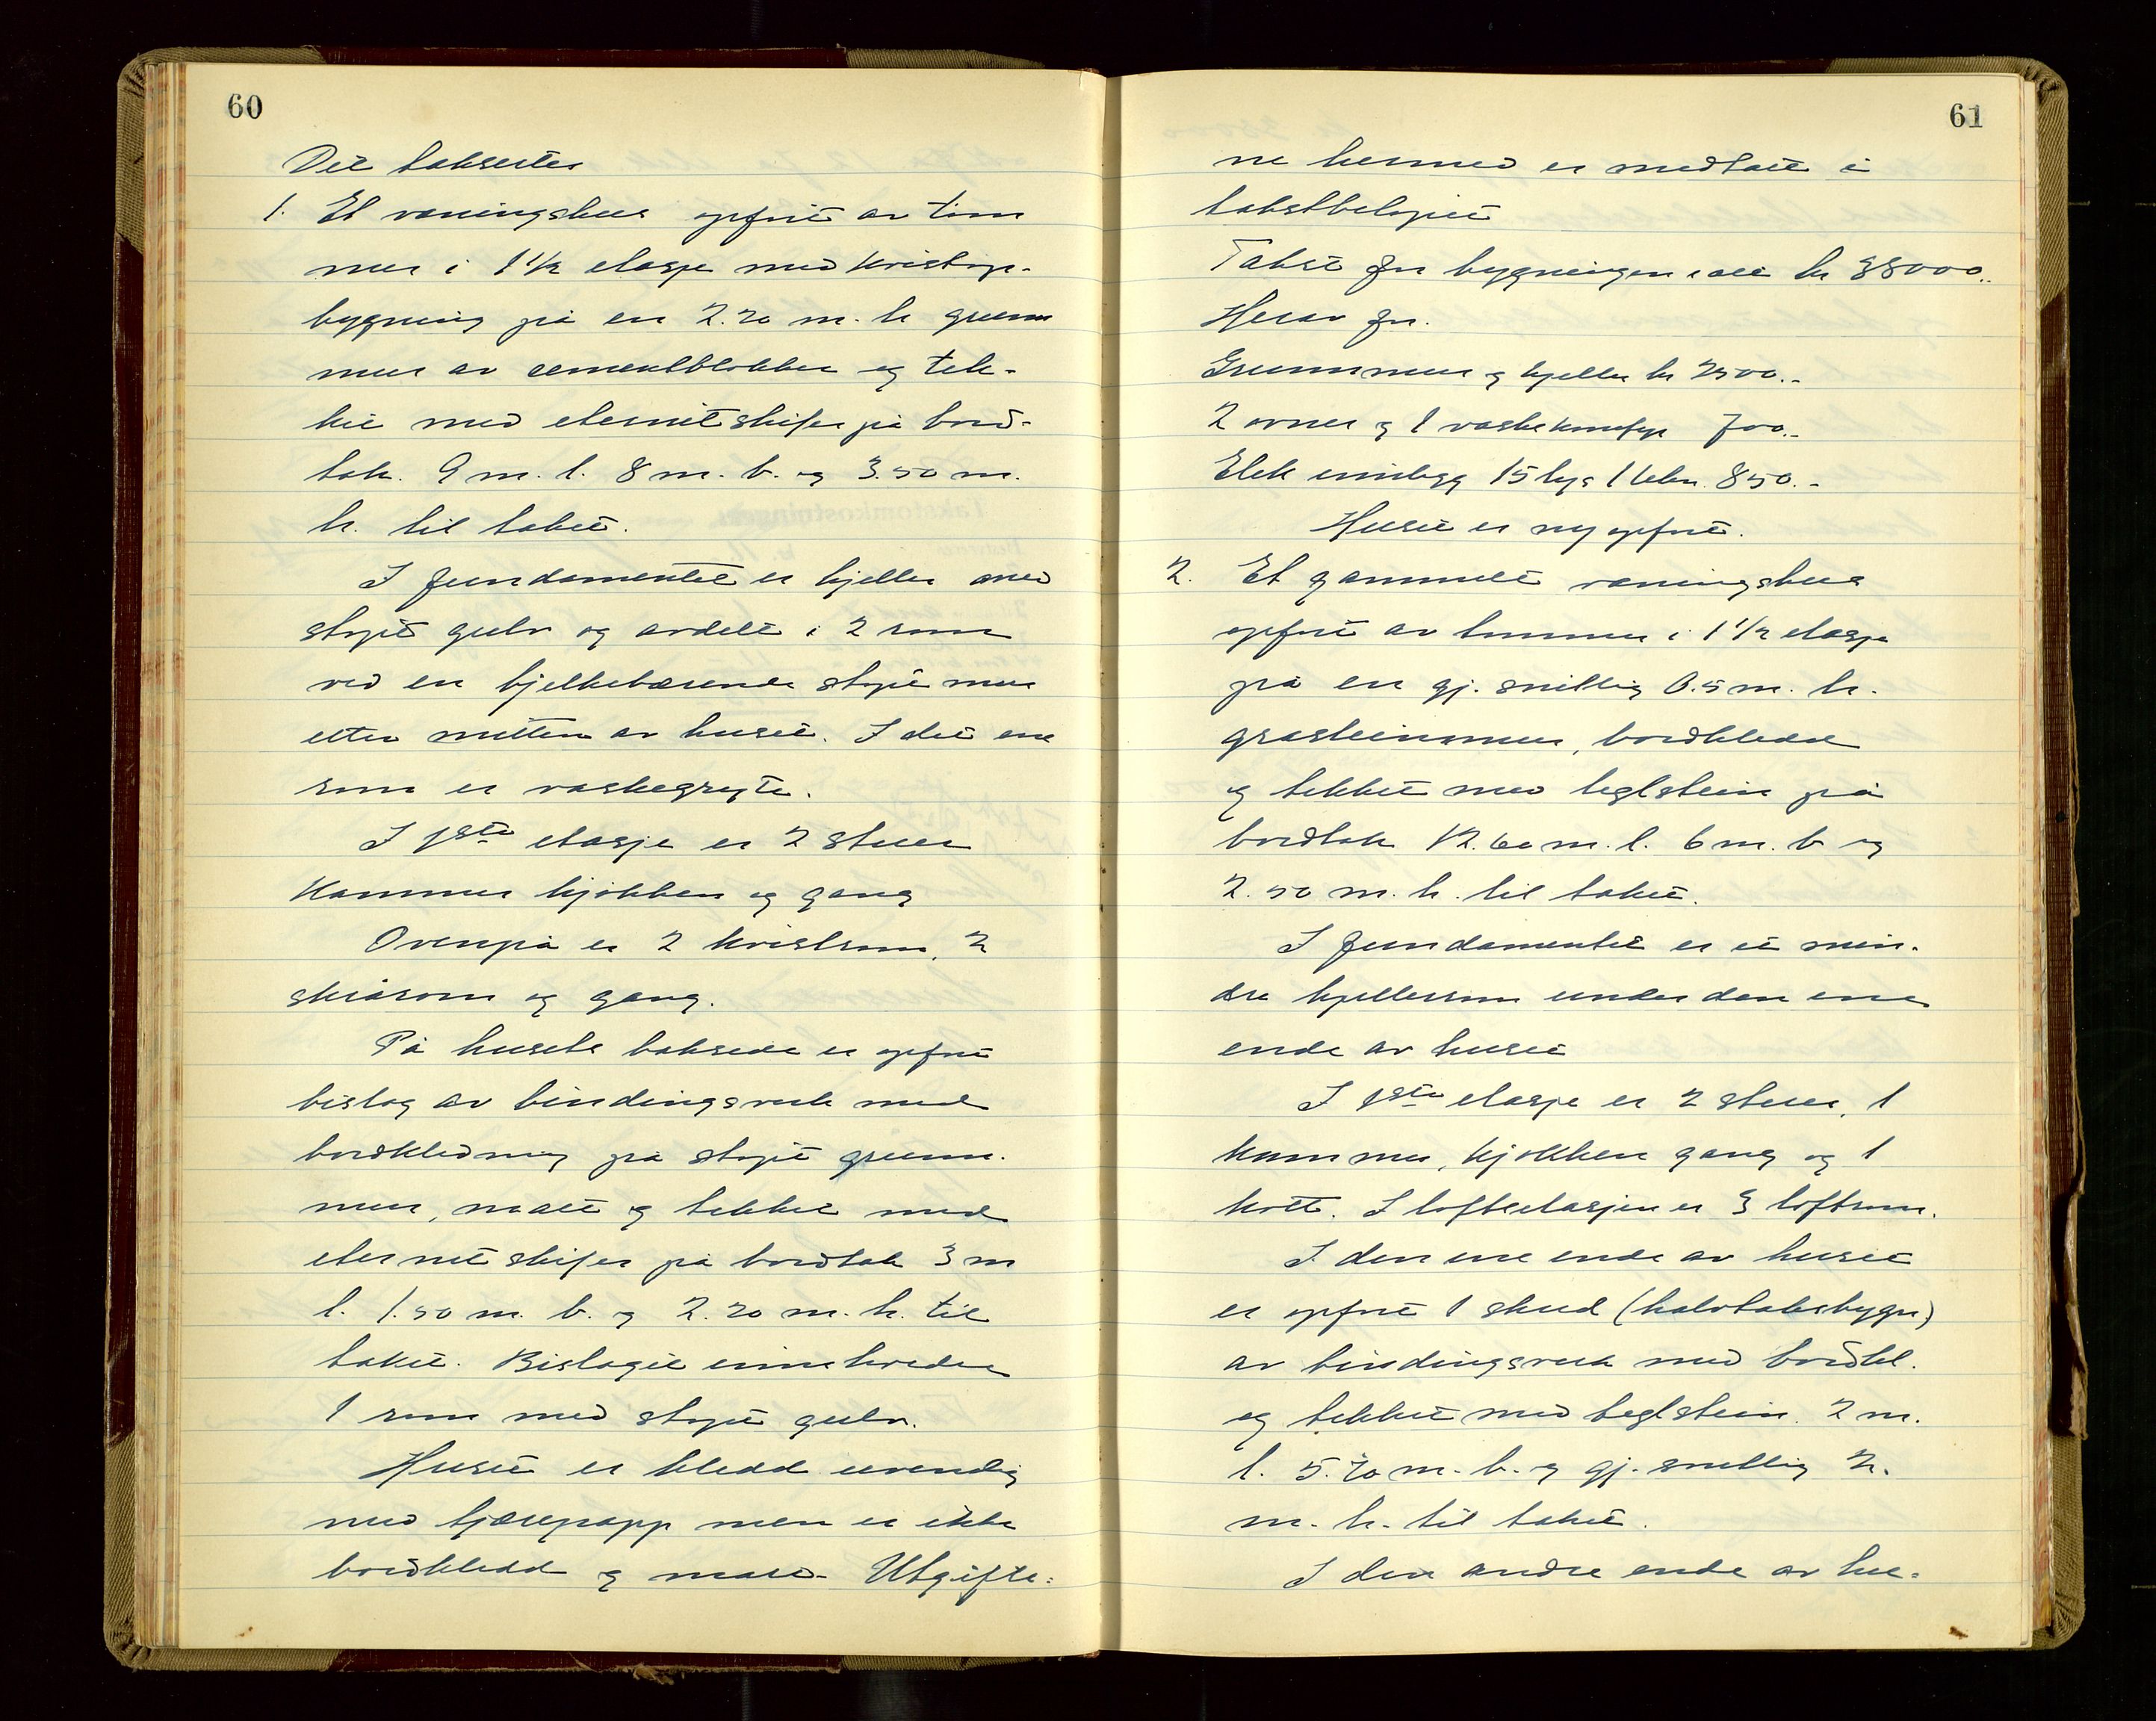 60
Det takseres
1. Et vaningshus opført av tøm
mer i 1 1/2 etasje med kvistop-
bygning på en 2.20 m. h grunn
mur av sementblokker og tek-
ket med eternitskifer på bord-
tak. 9 m. l. 8 m. b. og 3.50 m.
h. til taket.
I fundamentet er kjeller med
støpt gulv og avdelt i 2 rum
ved en bjelkebærende støpt mur
etter mitten av huset. I det ene
rum er vaskegryte.
I 1ste etasje er 2 stuer
kammer kjøkken og gang
Ovenpå er 2 kvistrum, 2
skrårom og gang.
På husets bakside er opført
bislag av bindingsverk med
bordkledning på støpt grunn-
mur, malt og tekket med
eternitskifer på bordtak 3 m
l. 1.50 m. b. og 2.20 m. h. til
taket. Bislaget inneholder
1 rum med støpt gulv.
Huset er kledd utvendig
med tjærepapp men er ikke
bordkledd og malt. Utgifte-
61
ne hermed er medtatt i
takstbeløpet
Takst for bygningen i alt kr 38000..
Herav for.
Grunnmur og kjeller kr 2500.-
2 ovner og 1 vaskekomfyr 700.-
Elek innlegg 15 lys 1 tekn. 850.-
Huset er ny opført.
2. Et gammelt vaningshus
opført av tømmer i 1 1/2 etasje
på en gj. snittlig 0.5 m. h.
gråsteinsmur, bordkledd
og tekket med teglstein på
bordtak 12.60 m. l. 6 m. b og
2.50 m. h. til taket.
I fundamentet er et min-
dre kjellerrum under den ene
ende av huset
I 1ste etasje er 2 stuer, 1
kammer, kjøkken gang og 1
kott. I loftsetasjen er 3 loftsrum.
I den ene ende av huset
er opført 1 skud (halvtaksbygn)
av bindingsverk med bordkl.
og tekket med teglstein. 2 m.
l. 5.20 m. b. og gj. snittlig 2.
m. h. til taket.
I den andre ende av hu-